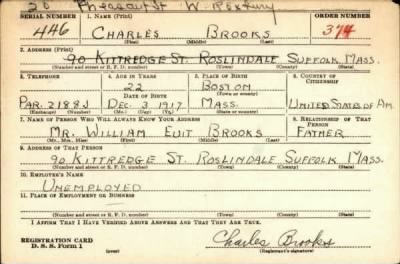 20 Pheasant St W. Roxbury
SERIAL NUMBER 1. NAME (Print) ORDER NUMBER
446 CHARLES BROOKS 374
(First) (Middle) (Last)
2. ADDRESS (Print)
90 KITTREDGE ST. ROSLINDALE SUFFOLK MASS.
(Number and street or R. F. D. number) (Town) (County) (State)
3. TELEPHONE 4. AGE IN YEARS 5. PLACE OF BIRTH 6. COUNTRY OF CITIZENSHIP
22 BOSTON
DATE OF BIRTH (Town or county)
PAR. 2188J DEC. 3 1917 MASS. UNITED STATES OF AM.
(Exchange) (Number) (Mo.) (Day) (Yr.) (State or country)
7. NAME OF PERSON WHO WILL ALWAYS KNOW YOUR ADDRESS 8. RELATIONSHIP OF THAT PERSON
MR. WILLIAM BROOKS FATHER
(Mr., Mrs., Miss) (First) (Middle) (Last)
9. ADDRESS OF THAT PERSON
90 KITTREDGE ST. ROSLINDALE SUFFOLK MASS.
(Number and street or R. F. D. number) (Town) (County) (State)
10. EMPLOYER'S NAME
UNEMPLOYED
11. PLACE OF EMPLOYMENT OR BUSINESS
(Number and street or R. F. D. number) (Town) (County) (State)
I AFFIRM THAT I HAVE VERIFIED ABOVE ANSWERS AND THAT THEY ARE TRUE.
REGISTRATION CARD
D. S. S. Form 1 (over) Charles Brooks
(Registrant's signature)